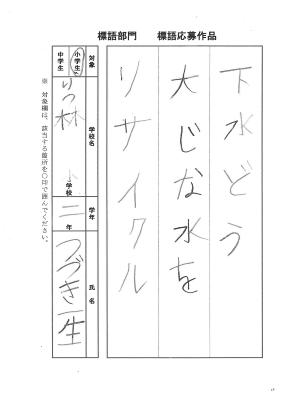 標語部門 標語応募作品
下水どう
大じな水を
リサイクル
対象 小学生 中学生
学校名 りつ林 小学校
学年 二年
氏名 つづき一生
※ 対象欄は、該当する箇所を〇印で囲んでください。